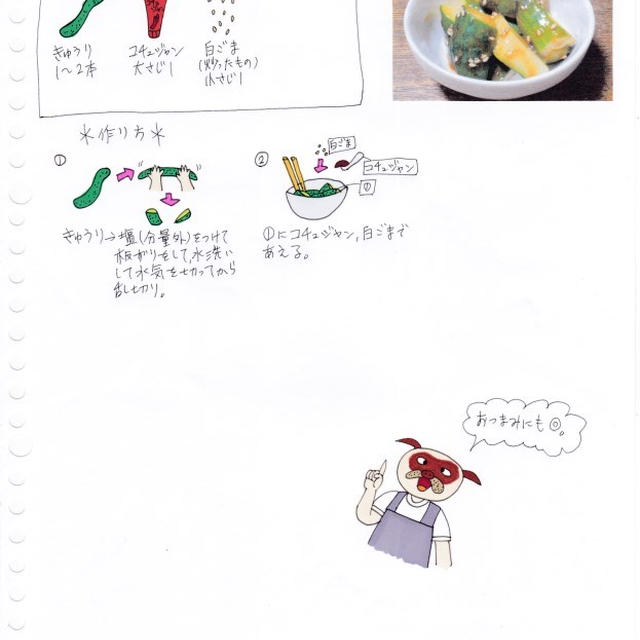 きゅうり
1〜2本
コチュジャン
大さじ1
白ごま
(炒ったもの)
小さじ1
*作り方*
①
きゅうり→塩(分量外)をつけて
板ずりをして、水洗い
して水気を切ってから
乱切り。
②
白ごま
コチュジャン
①
①にコチュジャン,白ごまで
あえる。
おつまみにも◎。